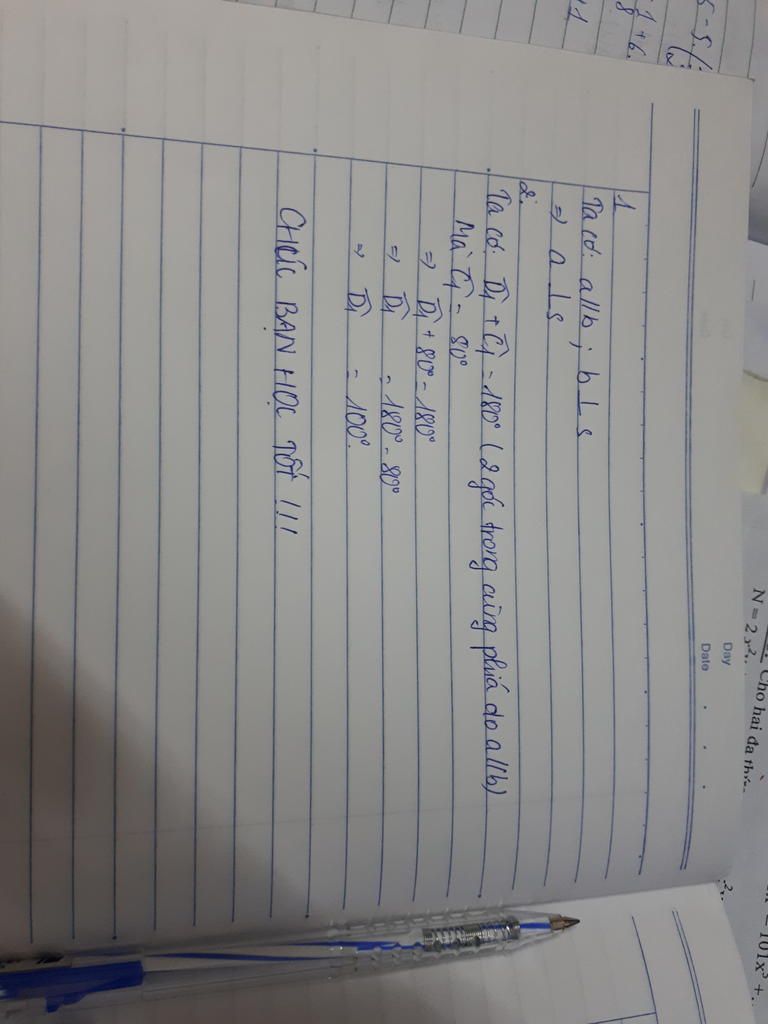 Day
Date
1
Ta có: a//b ; b ⊥ s
⇒ a ⊥ s
2.
Ta có: D̂₁ + Ĉ₁ = 180° (2 góc trong cùng phiá do a//b)
Mà Ĉ₁ = 80°
⇒ D̂₁ + 80° = 180°
⇒ D̂₁ = 180° - 80°
⇒ D̂₁ = 100°.
CHÚC BẠN HỌC TỐT !!!
Cho hai đa
N = 2x²
101x³ +